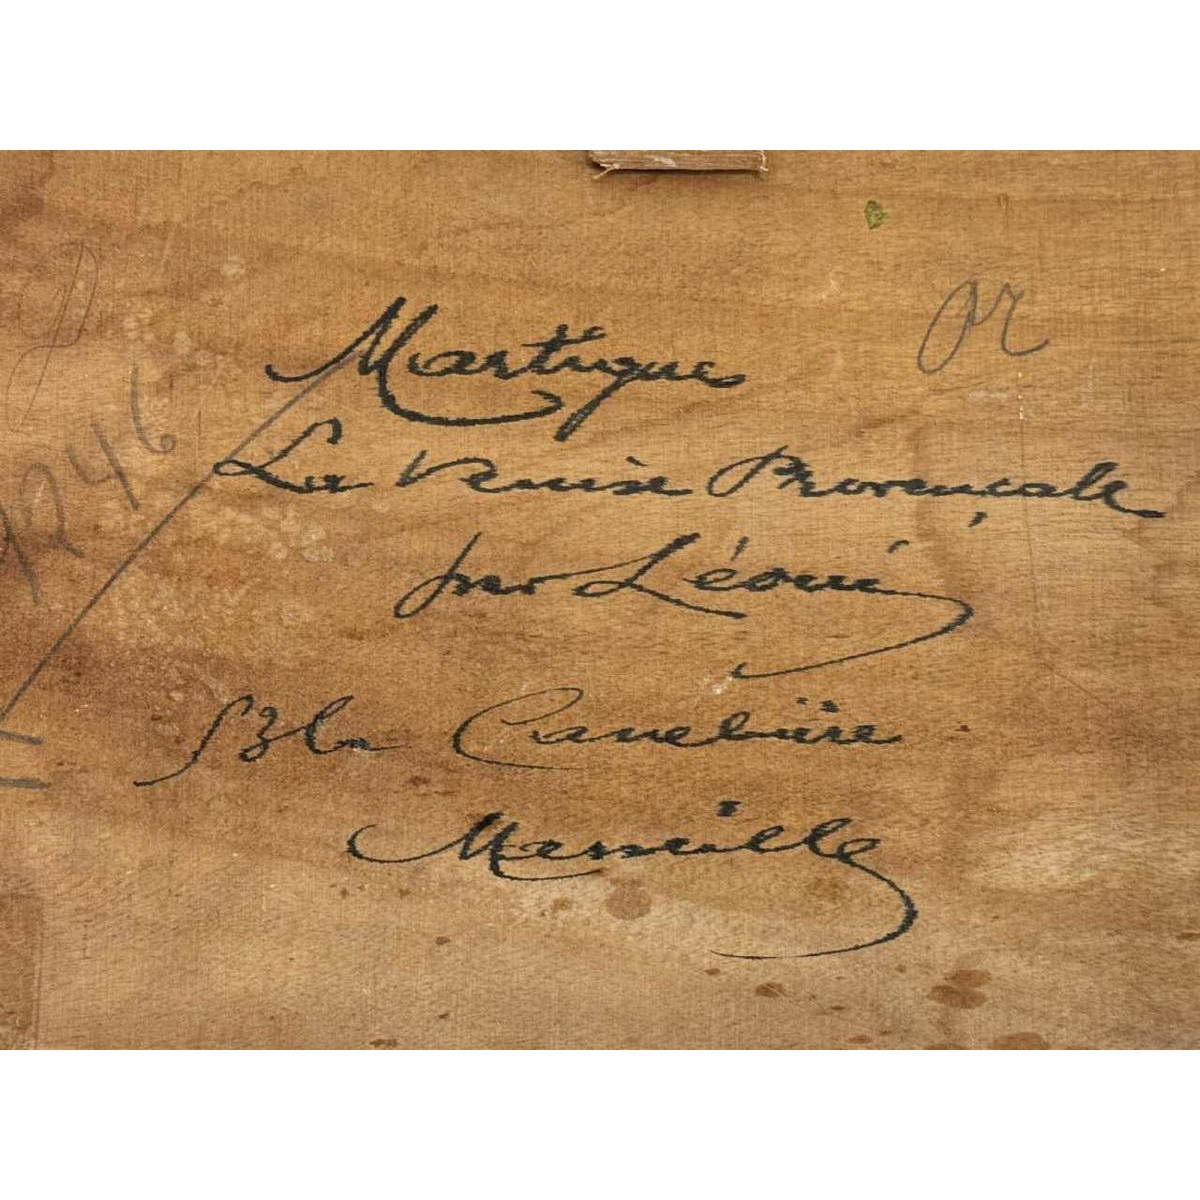 Martigues
La Venise Provençale
par Léoni
53 La Canebière
Marseille
7246